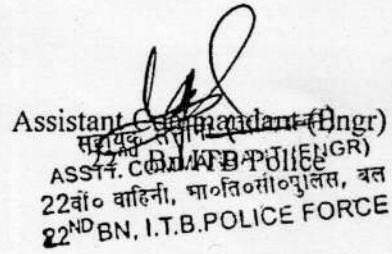 Assistant Commandant (Engr)
22nd Bn ITB Police
सहायक
ASSTT. COMMANDANT (ENGR)
22वीं० वाहिनी, भा०ति०सी०पुलिस, बल
22ND BN, I.T.B.POLICE FORCE